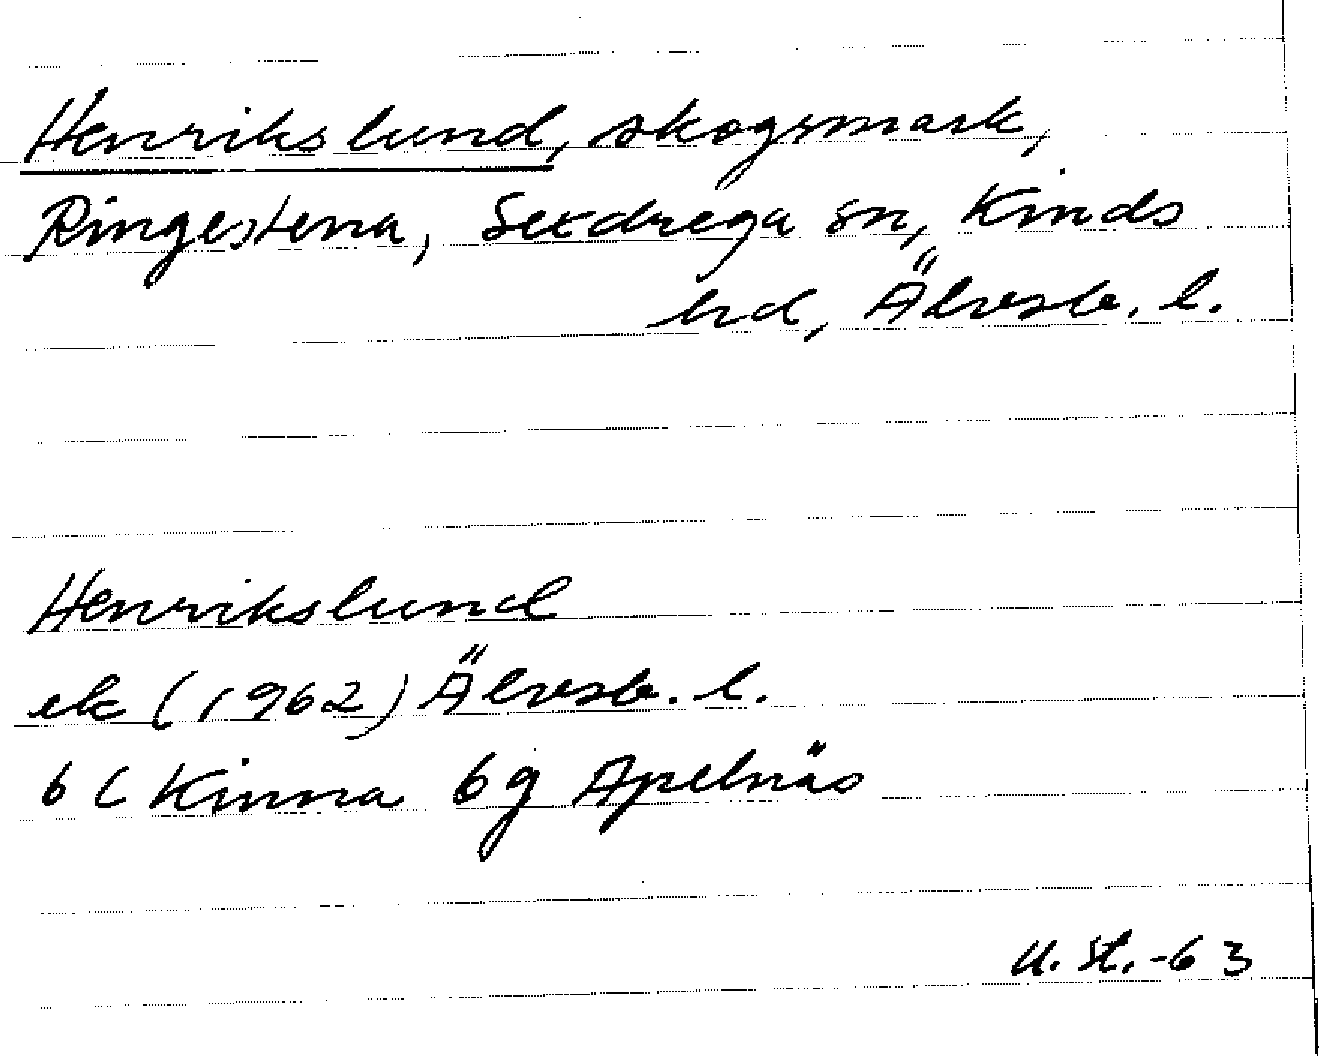 Henrikslund, skogsmark,
Ringestena, Sexdrega sn, Kinds
hd, Älvsb. l.
Henrikslund
ek (1962) Älvsb. l.
6 C Kinna 6g Apelnäs
U. St. -63